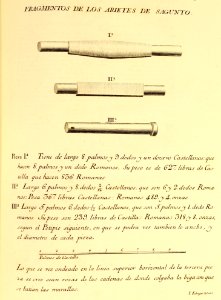 FRAGMENTOS DE LOS ARIETES DE SAGUNTO
Iº
IIº
IIIº
Iº Tiene de largo 8 palmos y 3 dedos y un dozavo Castellanos: que
hacen 8 palmos y un dedo Romanos. Su peso es de 627 libras de Cas
tilla que hacen 856 Romanas
IIº Largo 6 palmos y 8 dedos ¼ Castellanos, que son 6 y 2 dedos Roma
nos: Pesa 367 libras Castellanas: Romanas 482 y 4 onzas.
IIIº Largo 5 palmos 6 dedos ½ Castellanos, que son 5 palmos y 1 dedo Ro
manos. Su peso son 239 libras de Castilla: Romanas 318 y 8 onzas,
segun el Petipie siguiente, en que se podra ver tambien lo ancho, y
el diametro de cada pieza.
Palmos de Castilla
Lo que se ve quebrado en la linea superior horizontal de la tercera pie
za es con unas roscas de las cadenas de donde colgaba la biga con que
se batian las murallas.